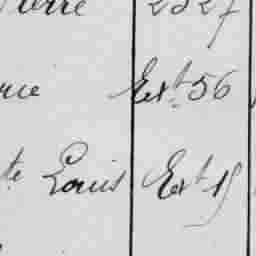 ierre 2527
rie Ext 56
te Louis Ext 15